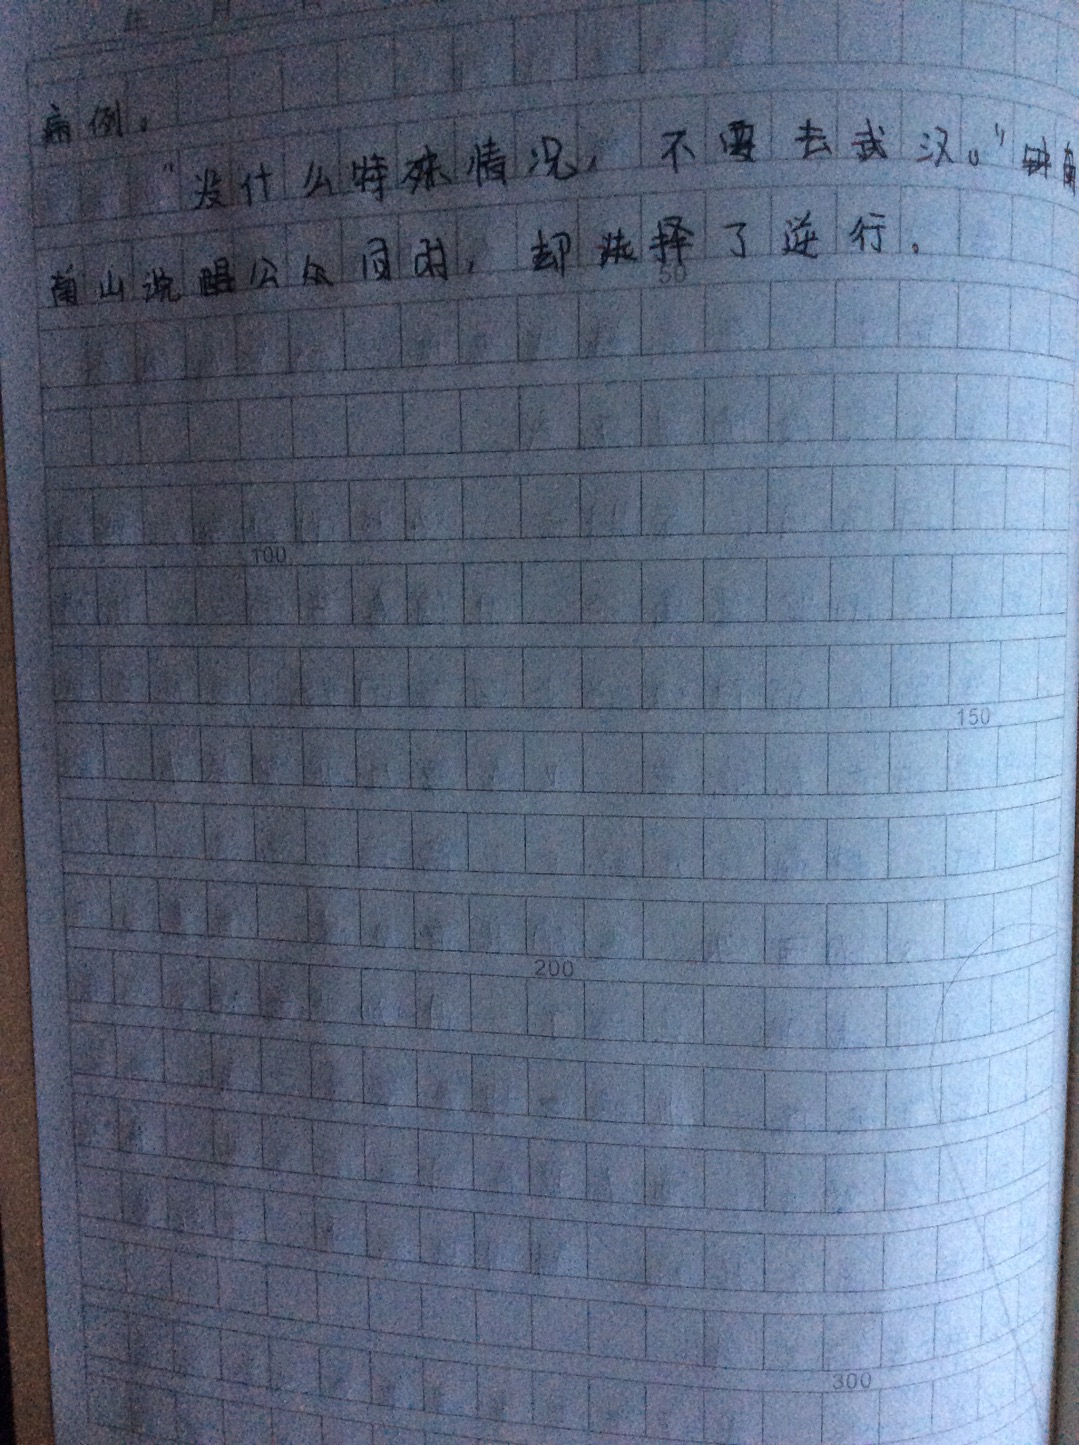 年 月
病例。
“没什么特殊情况，不要去武汉。”钟南
山说 公众同时，却选择了逆行。
50
100
150
200
300